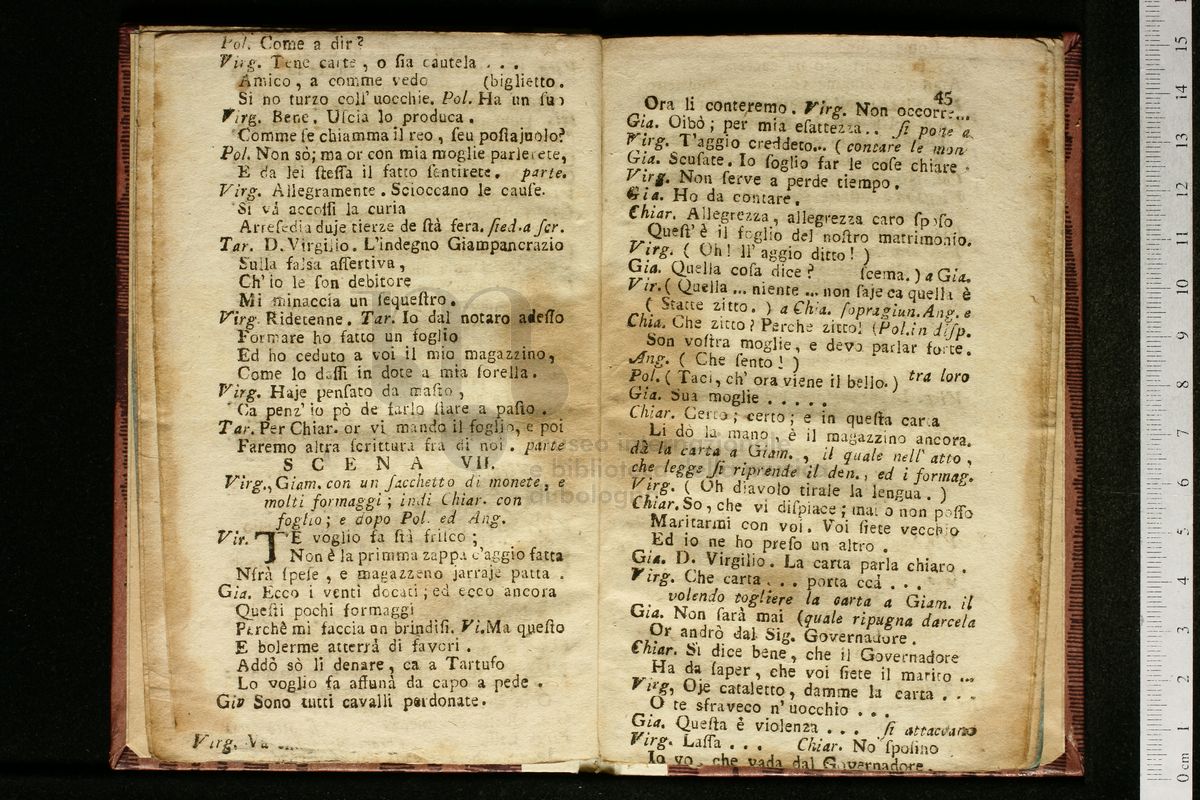 Pol. Come a dir?
Virg. Tene carte, o ſia cautela ...
Amico, a comme vedo (biglietto.
Si no turzo coll'uocchie. Pol. Ha un ſuo
Virg. Bene. Uſcia lo produca.
Comme ſe chiamma il reo, ſeu poſtajuolo?
Pol. Non sò; ma or con mia moglie parlerete,
E da lei ſteſſa il fatto ſentirete. parte.
Virg. Allegramente. Scioccano le cauſe.
Si và accoſſi la curia
Arreſedia duje tierze de ſtà fera. ſied.a ſcr.
Tar. D. Virgilio. L'indegno Giampancrazio
Sulla falſa aſſertiva,
Ch'io le ſon debitore
Mi minaccia un ſequeſtro.
Virg. Ridetenne. Tar. Io dal notaro adeſſo
Formare ho fatto un foglio
Ed ho ceduto a voi il mio magazzino,
Come lo daſſi in dote a mia ſorella.
Virg. Haje penſato da maſto,
Ca penz'io pò de farlo ſtare a paſto.
Tar. Per Chiar. or vi mando il foglio, e poi
Faremo altra ſcrittura fra di noi. parte
SCENA VII.
Virg., Giam. con un ſacchetto di monete, e
molti formaggi; indi Chiar. con
foglio; e dopo Pol. ed Ang.
Vir. TE voglio fa ſtà friſco;
Non è la primma zappa c'aggio fatta
Nſrà ſpeſe, e magazzeno jarraje patta.
Gia. Ecco i venti docati; ed ecco ancora
Queſti pochi formaggi
Perchè mi faccia un brindiſi. Vi. Ma queſto
E bolerme atterrà di favori.
Addò sò li denare, ca a Tartufo
Lo voglio fa aſſunà da capo a pede.
Gia Sono tutti cavalli perdonate.
Virg. Va
45
Ora li conteremo. Virg. Non occorre...
Gia. Oibò; per mia eſattezza.. ſi pone a
Virg. T'aggio creddeto... (contare le mon
Gia. Scuſate. Io ſoglio far le coſe chiare.
Virg. Non ſerve a perde tiempo.
Gia. Ho da contare.
Chiar. Allegrezza, allegrezza caro ſpoſo
Queſt'è il foglio del noſtro matrimonio.
Virg. ( Oh! ll'aggio ditto! )
Gia. Quella coſa dice? ſcema.) a Gia.
Vir. ( Quella ... niente ... non ſaje ca quella è
( Statte zitto. ) a Chia. ſopragiun. Ang. e
Chia. Che zitto? Perche zitto! (Pol. in diſp.
Son voſtra moglie, e devo parlar forte.
Ang. ( Che ſento! )
Pol. ( Taci, ch'ora viene il bello. ) tra loro
Gia. Sua moglie .....
Chiar. Certo; certo; e in queſta carta
Li dò la mano, è il magazzino ancora.
dà la carta a Giam., il quale nell'atto,
che legge ſi riprende il den., ed i formag.
Virg. ( Oh diavolo tirale la lengua. )
Chiar. So, che vi diſpiace; mai o non poſſo
Maritarmi con voi. Voi ſiete vecchio
Ed io ne ho preſo un altro.
Gia. D. Virgilio. La carta parla chiaro.
Virg. Che carta ... porta ccà ...
volendo togliere la carta a Giam. il
Gia. Non ſarà mai (quale ripugna darcela
Or andrò dal Sig. Governadore.
Chiar. Si dice bene, che il Governadore
Ha da ſaper, che voi ſiete il marito ...
Virg, Oje cataletto, damme la carta ...
O te sfraveco n'uocchio ...
Gia. Queſta è violenza ... ſi attaccano
Virg. Laſſa ... Chiar. No ſpoſino
Io vo, che vada dal Governadore.